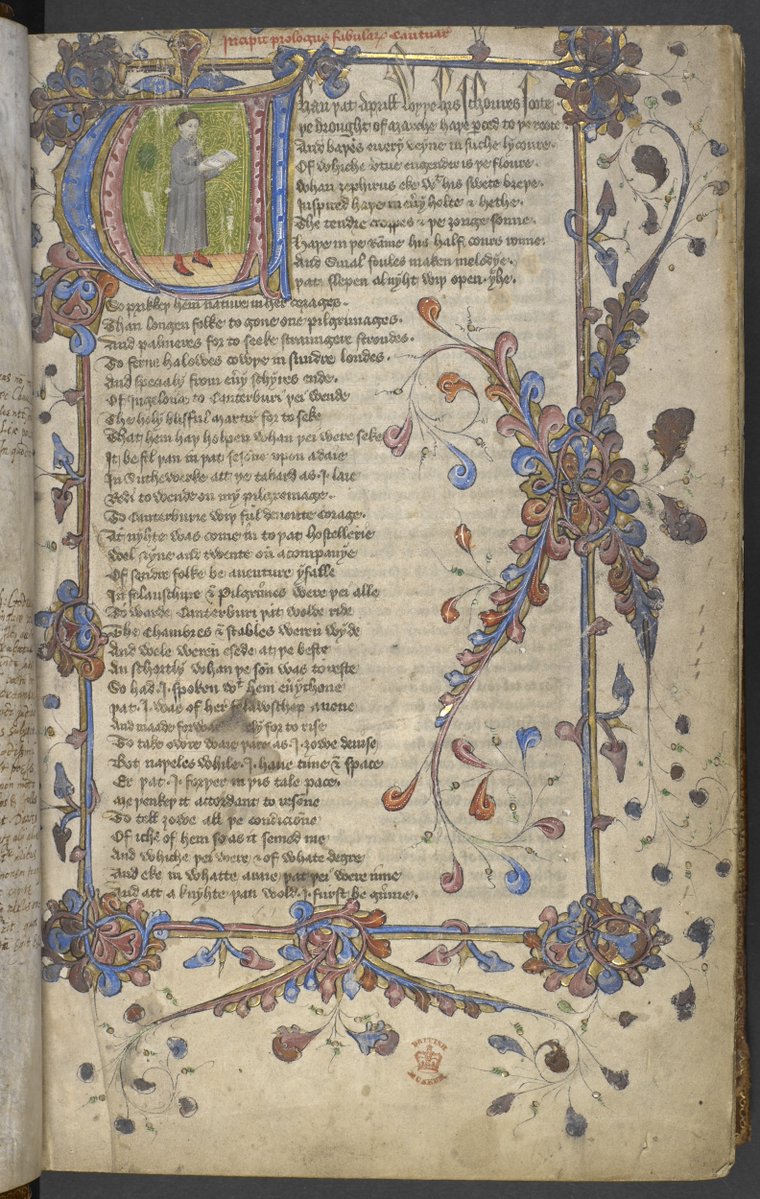 Incipit prologus fabularum Cantuar
Whan þat Aprill wyþ his schoures soote
þe drought of Marche haþ perced to þe roote
And baþed euery veyne in suche lycoure
Of whiche vertue engender is þe floure
Whan zephirus eke wt his swete breþe
Inspired haþ in euery holte & heþe
The tendre croppes & þe zonge sonne
Haþe in þe Rame his half cours ronne
And smal foules maken melodye
þat slepen al nyht wiþ open yhe
So prikkeþ hem nature in her corages
Than longen folke to gone one pilgrimages
And palmeres for to seeke straungere strondes
To ferne halowes cowþe in sundre londes
And specialy from euery schyres ende
Of Ingelonde to Canterburi þei wende
The holy blisful martir for to seke
That hem haþ holpen whan þei were seke
It befil þan in þat sesone upon a daie
In Sutheweke att þe tabard as .I. laie
Redi to wende on my pilgremage
To Canterburie wiþ ful deuoute corage
At nyhte was come in to þat hostellerie
Wel nyne and twente on a companye
Of sondre folke be auenture yfalle
In felauschipe & Pilgrimes were þei alle
To warde Canterburi þat wolde ride
The Chambres & stables weren wyde
And wele weren esede at þe beste
An schortly whan þe son was to reste
So had .I. spoken wt hem euerychone
þat .I. was of her felawschep anone
And maade forwar ely for to rise
To take owre waie þare as .I. zowe deuise
Bot naþeles while .I. haue time & space
Er þat .I. forþer in þis tale pace
Me þenkeþ it accordant to resone
To tell zowe all þe condicione
Of iche of hem so as it semed me
And whiche þei were & of whate degre
And eke in whatte araie þat þei were inne
And att a knyhte þan wold .I. furst be ginne
BRITISH
MUSEUM